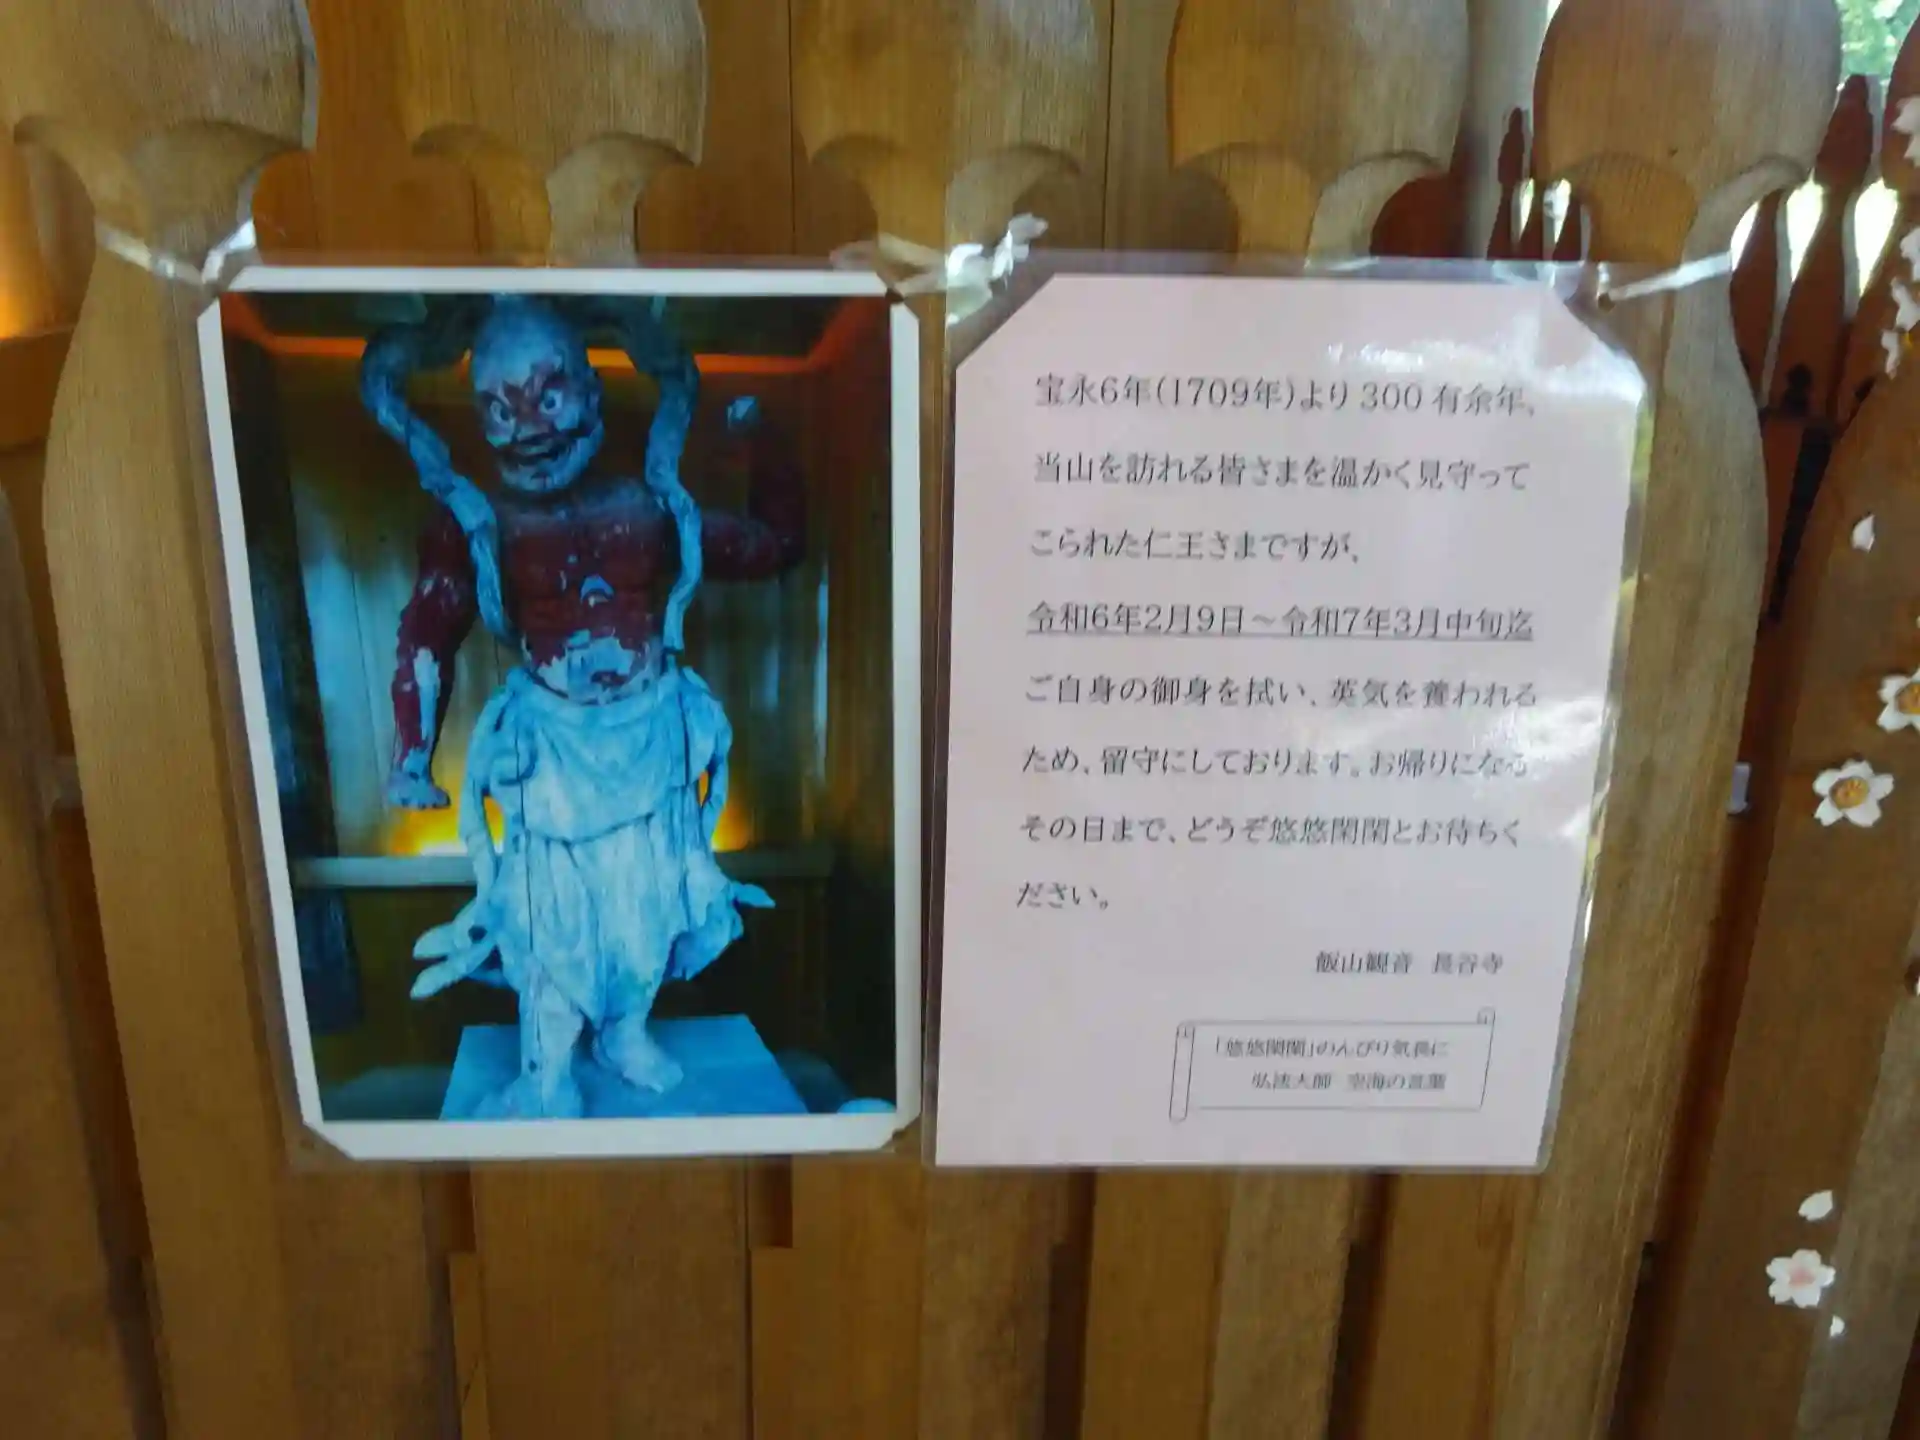 宝永6年(1709年)より300有余年、
当山を訪れる皆さまを温かく見守って
こられた仁王さまですが、
令和6年2月9日～令和7年3月中旬迄
ご自身の御身を拭い、英気を養われる
ため、留守にしております。お帰りになる
その日まで、どうぞ悠悠閑閑とお待ちく
ださい。
飯山観音 長谷寺
「悠悠閑閑」のんびり気長に
弘法大師 空海の言葉